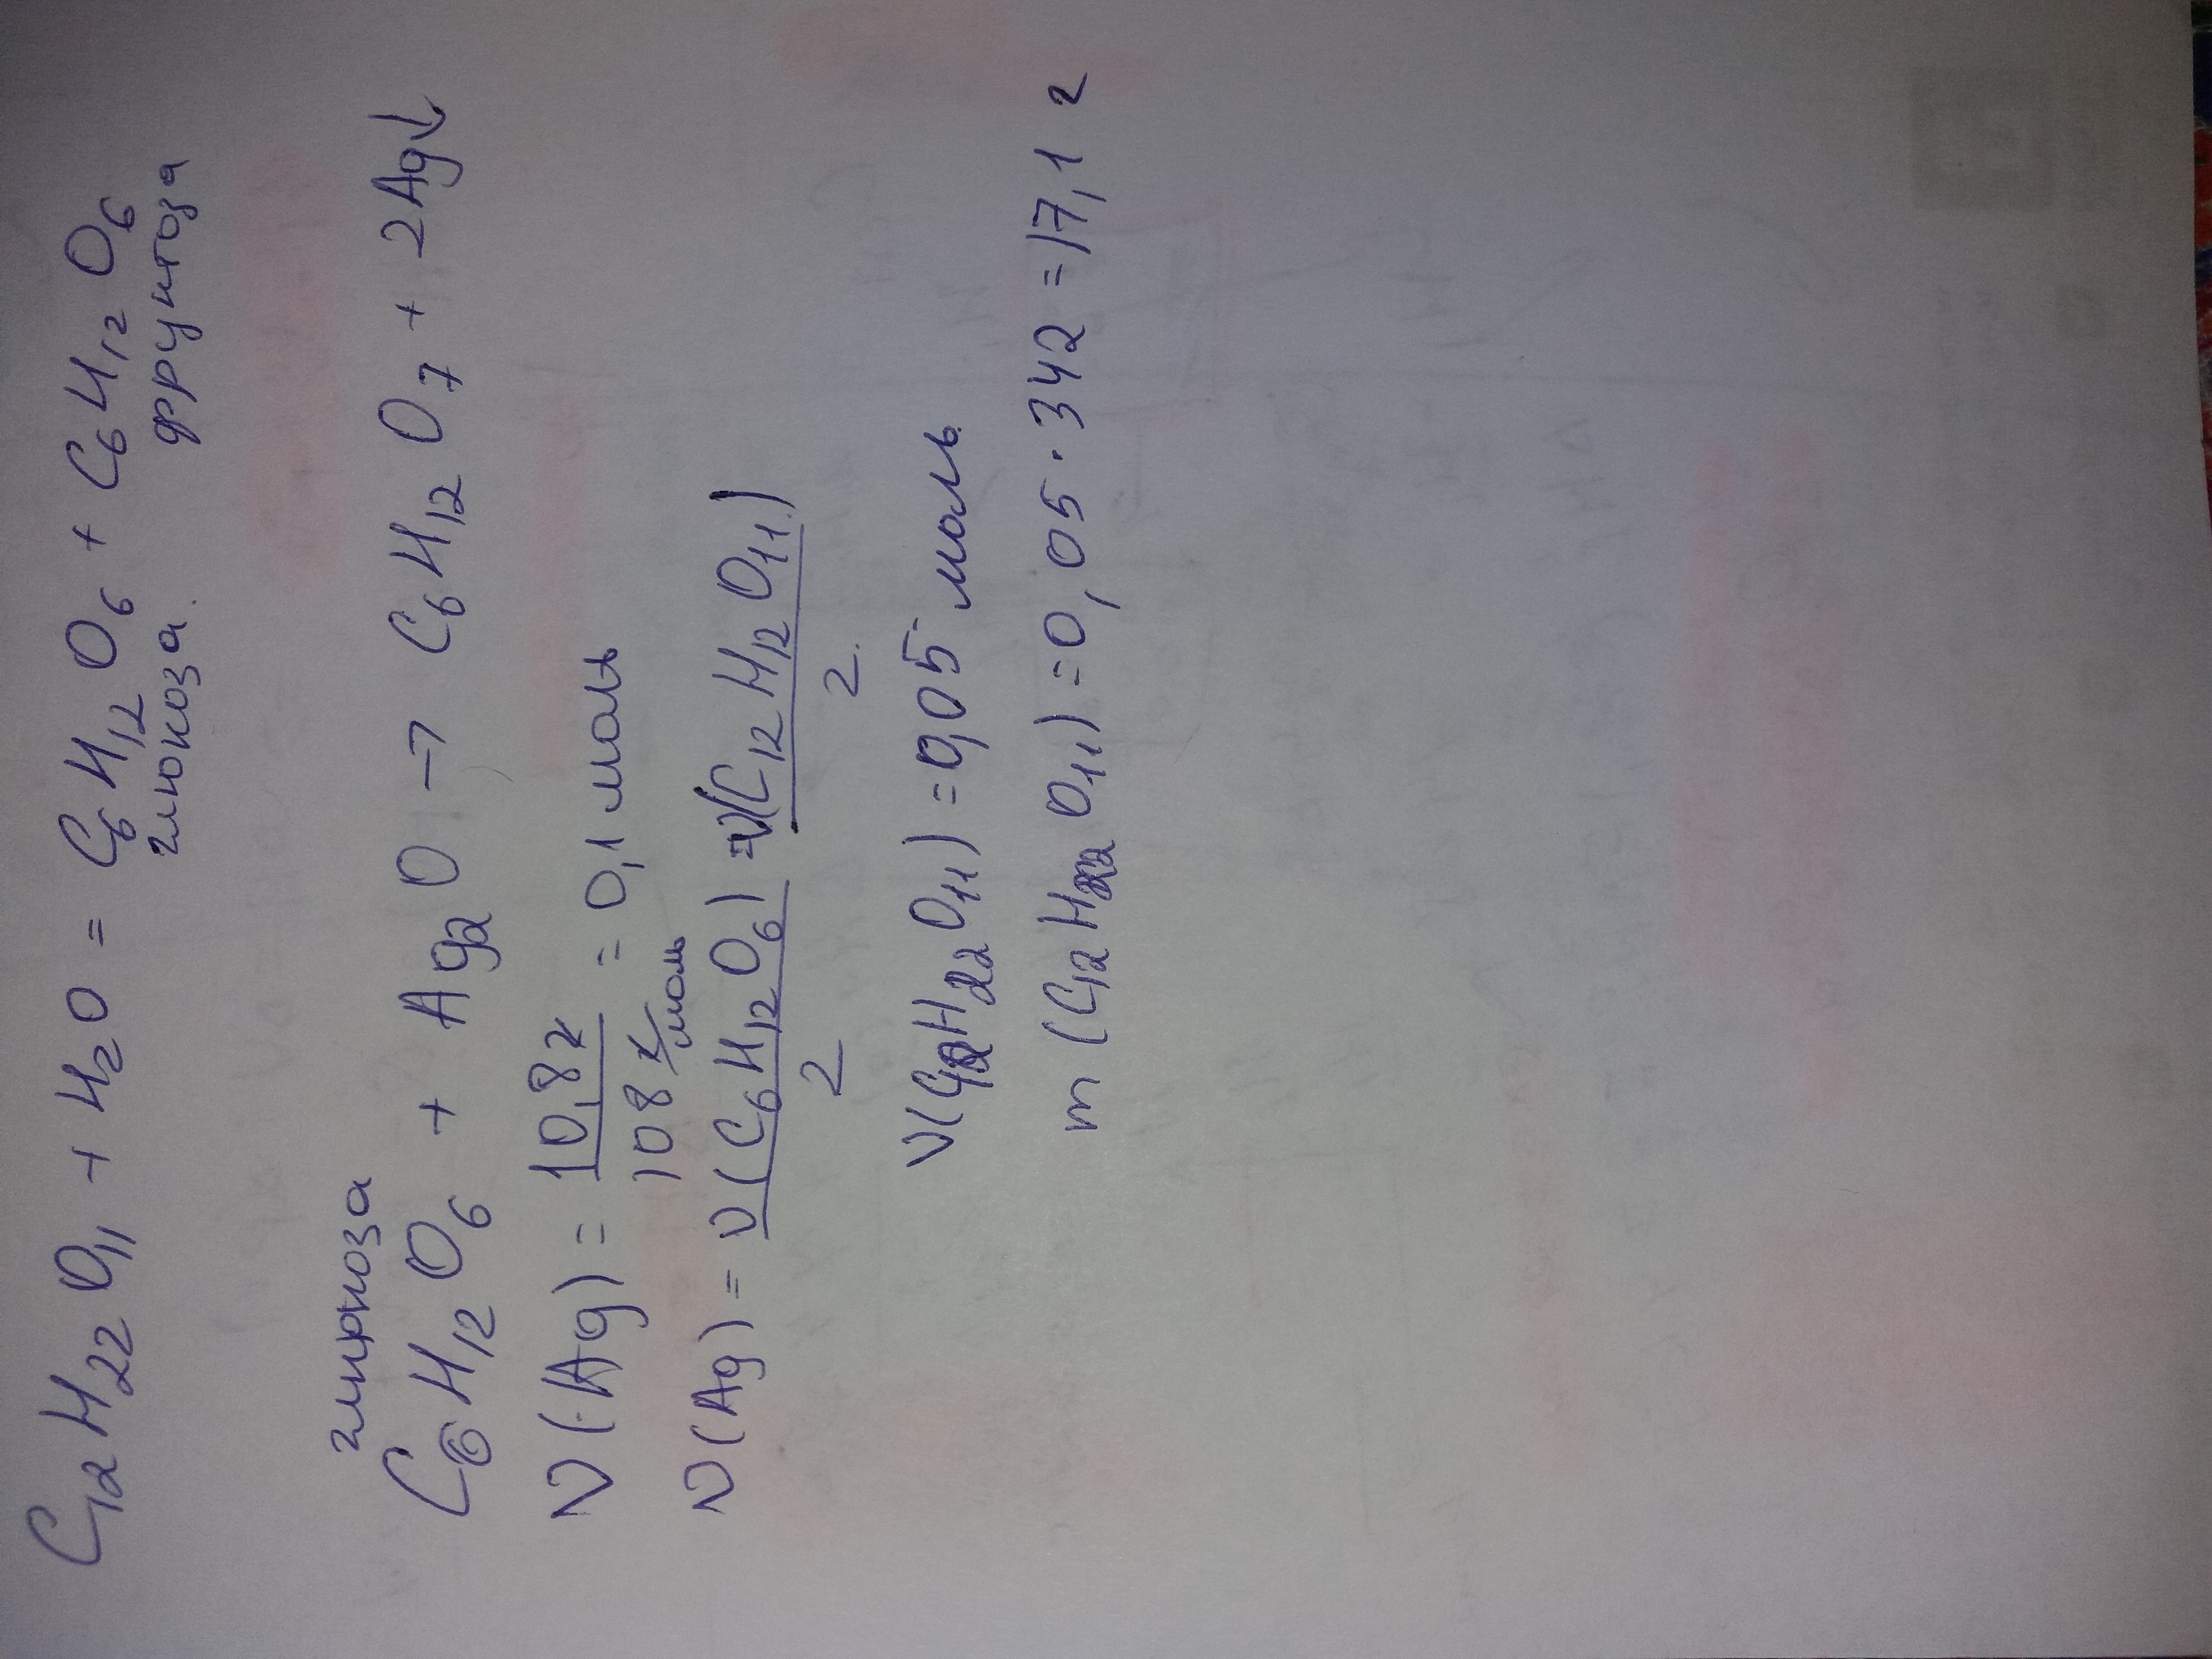 C₁₂H₂₂O₁₁ + H₂O = C₆H₁₂O₆ + C₆H₁₂O₆
глюкоза. фруктоза
глюкоза
C₆H₁₂O₆ + Ag₂O → C₆H₁₂O₇ + 2Ag↓
ν(Ag) = 10,8г / 108 г/моль = 0,1 моль
ν(Ag) = ν(C₆H₁₂O₆) / 2 = ν(C₁₂H₁₂O₁₁) / 2.
ν(C₁₂H₂₂O₁₁) = 0,05 моль
m(C₁₂H₂₂O₁₁) = 0,05 · 342 = 17,1 г